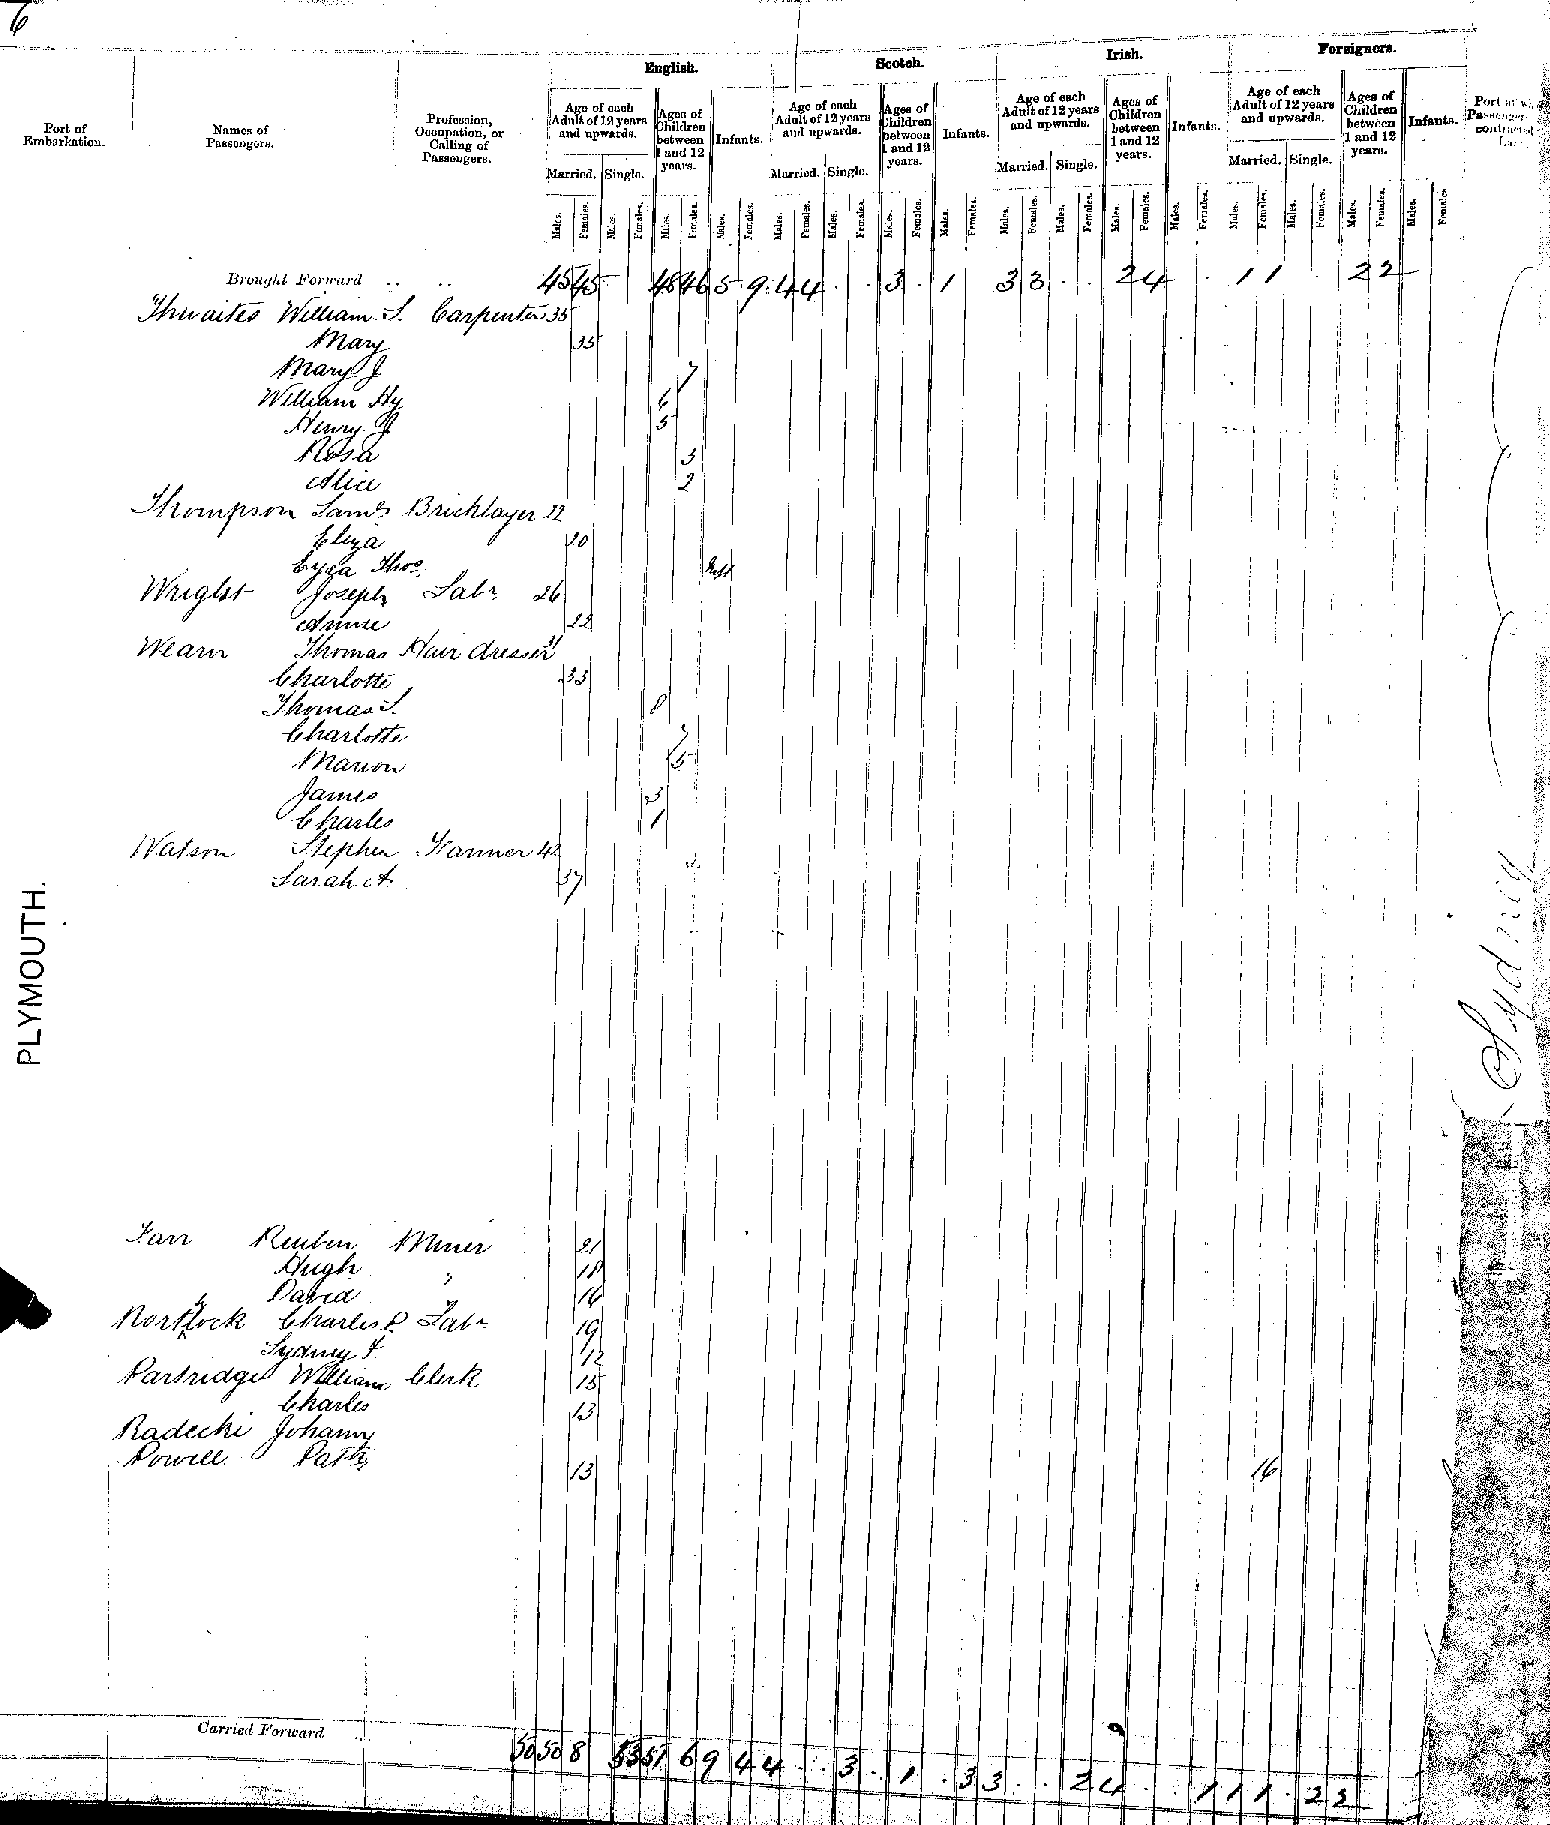 6
English. Scotch. Irish. Foreigners.
Port of Embarkation. Names of Passengers. Profession, Occupation, or Calling of Passengers. Age of each Adult of 12 years and upwards. Ages of Children between 1 and 12 years. Infants. Age of each Adult of 12 years and upwards. Ages of Children between 1 and 12 years. Infants. Age of each Adult of 12 years and upwards. Ages of Children between 1 and 12 years. Infants. Age of each Adult of 12 years and upwards. Ages of Children between 1 and 12 years. Infants. Port at Passenger contracted
Married. Single. Married. Single. Married. Single. Married. Single.
Males. Females. Males. Females. Males. Females. Males. Females. Males. Females. Males. Females. Males. Females. Males. Females. Males. Females. Males. Females. Males. Females. Males. Females. Males. Females. Males. Females. Males. Females. Males. Females.
Brought Forward .. .. 45 45 48 46 5 9 4 4 . . 3 . 1 3 3 . . 2 4 . 1 1 . 2 2
Thwaites William S. Carpenter 35
Mary 35
Mary J 7
William Hy 6
Henry J 5
Rosa 3
Alice 2
Thompson Saml Bricklayer 22
Eliza 20
Thos. Inft
Wright Joseph Labr 26
Annie 22
Wearn Thomas Hair dresser
Charlotte 33
Thomas S. 8
Charlotte 7
Marion 5
James 3
Charles 1
Watson Stephen Farmer 42
Sarah A. 37
PLYMOUTH.
Sydney
Farr Reuben Miner 21
Hugh " 18
David 16
Northcock Charles R Labr 19
Sydney F 12
Partridge William Clerk 15
Charles 13
Radecki Johann 16
Powell Patk 13
Carried Forward 50 50 8 53 51 6 9 4 4 . . 3 . 1 . 3 3 . . 2 4 . . 1 1 1 . 2 2